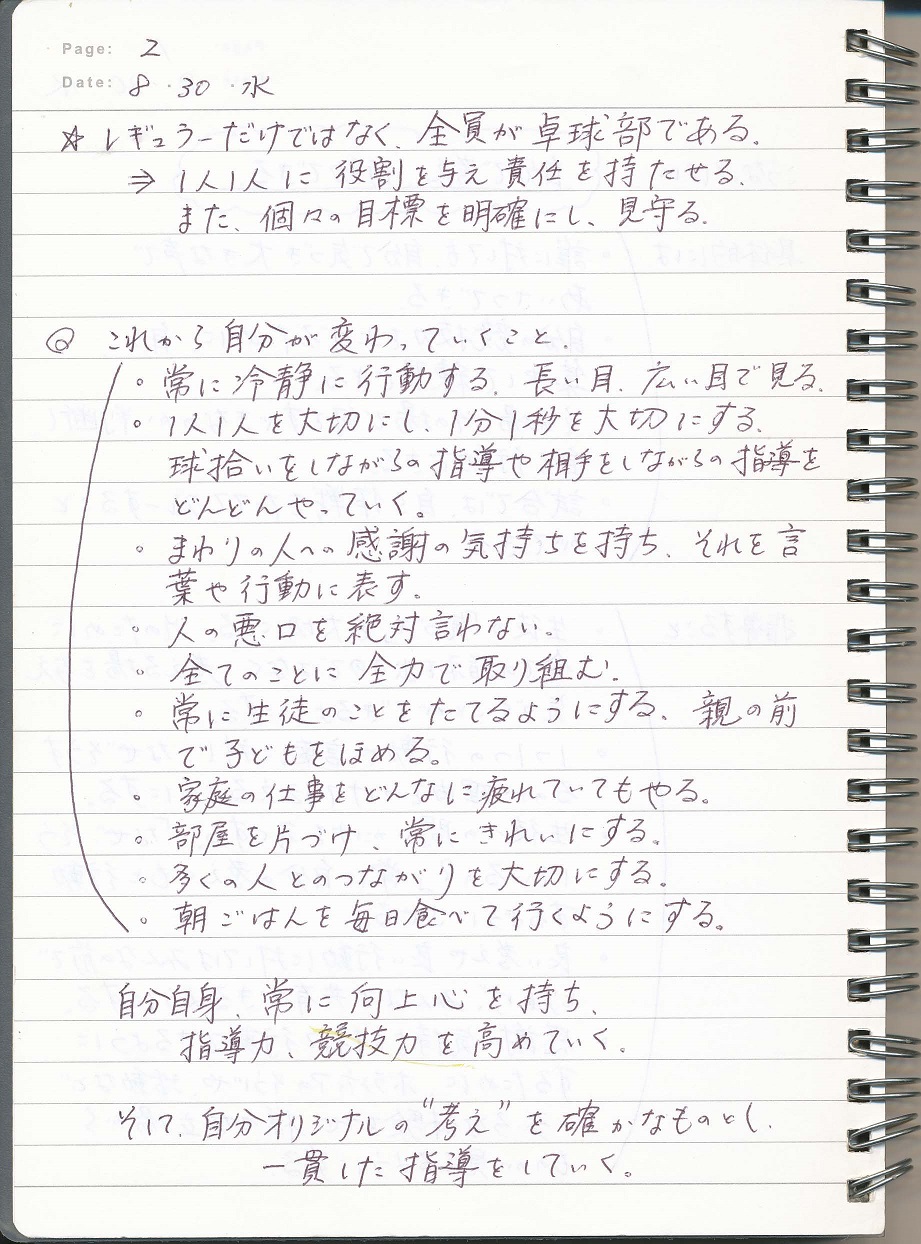 Page: 2
Date: 8・30・水
☆ レギュラーだけではなく、全員が卓球部である。
⇒ 1人1人に役割を与え責任を持たせる。
また、個々の目標を明確にし、見守る。
◎ これから自分が変わっていくこと。
○ 常に冷静に行動する。長い目、広い目で見る。
○ 1人1人を大切にし、1分1秒を大切にする。
球拾いをしながらの指導や相手をしながらの指導を
どんどんやっていく。
○ まわりの人への感謝の気持ちを持ち、それを言
葉や行動に表す。
○ 人の悪口を絶対言わない。
○ 全てのことに全力で取り組む。
○ 常に生徒のことをたてるようにする。親の前
で子どもをほめる。
○ 家庭の仕事をどんなに疲れていてもやる。
○ 部屋を片づけ、常にきれいにする。
○ 多くの人とのつながりを大切にする。
○ 朝ごはんを毎日食べて行くようにする。
自分自身、常に向上心を持ち、
指導力、競技力を高めていく。
そして、自分オリジナルの“考え”を確かなものとし、
一貫した指導をしていく。